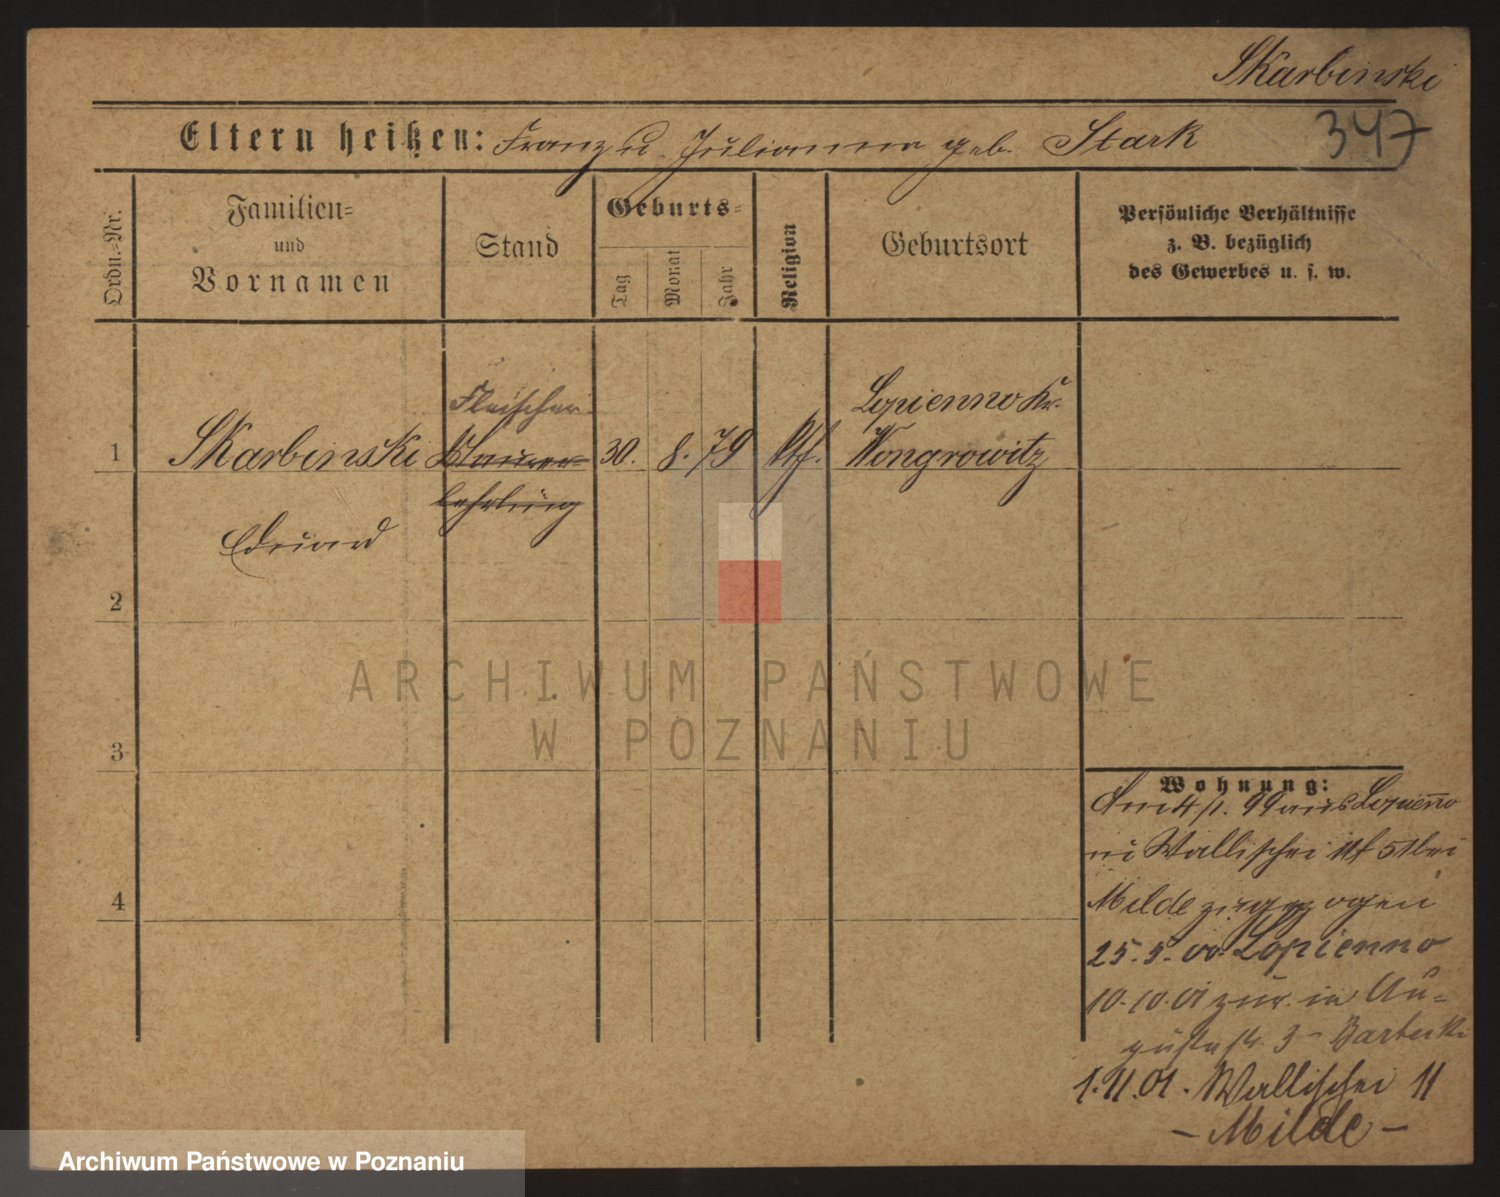 Skarbinski
347
Eltern heißen: Franz u. Julianna geb. Stark
Ordn.-Nr.
Familien-
und
Vornamen
Stand
Geburts-
Tag
Monat
Jahr
Religion
Geburtsort
Persönliche Verhältnisse
z. B. bezüglich
des Gewerbes u. s. w.
Fleischer
Lopienno Kr.
1 Skarbinski 30. 8. 79 Wongrowitz
lehrling
Eduard
2
3
4
Wohnung:
Am 4/1. 99 aus Lopienno
Wallischei 11 bei
Milde zugezogen
25.5.00. Lopienno
10.10.01 zur. in Au-
gustastr. 3 - Bartecki
1.11.01. Wallischei 11
- Milde -
ARCHIWUM PAŃSTWOWE
W POZNANIU
Archiwum Państwowe w Poznaniu